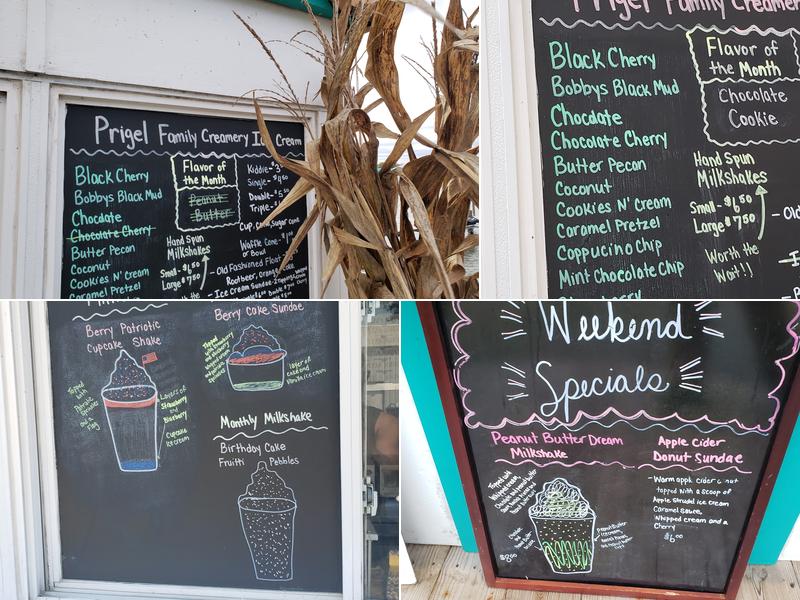 Prigel Family Creamery Ice Cream
Black Cherry
Bobbys Black Mud
Chocolate
Chocolate Cherry
Butter Pecan
Coconut
Cookies N' Cream
Caramel Pretzel
Flavor of
the Month
Peanut
Butter
Hand Spun
Milkshakes
Small - $6.50
Large $7.50
Kiddie - $3
Single -
Double -
Triple -
Cup, cone, sugar cone
Waffle Cone -
or Bowl
- Old Fashioned Float
Rootbeer, Orange,
- Ice Cream Sundae -
Prigel Family Creamery
Black Cherry
Bobbys Black Mud
Chocolate
Chocolate Cherry
Butter Pecan
Coconut
Cookies N' Cream
Caramel Pretzel
Cappuccino Chip
Mint Chocolate Chip
Flavor of
the Month
Chocolate
Cookie
Hand Spun
Milkshakes
Small - $6.50
Large $7.50
Worth the
Wait!!
Berry Patriotic
Cupcake Shake
Topped
with
Patriotic
Sprinkles
and a
Flag
Layers of
Strawberry
and
Blueberry
Cupcake
Ice cream
Berry Cake Sundae
layer of
cake and
Vanilla ice cream
Monthly Milkshake
Birthday Cake
Fruitti Pebbles
Weekend
Specials
Peanut Butter Dream
Milkshake
$8.00
Apple Cider
Donut Sundae
- Warm apple cider donut
topped with a scoop of
Apple Strudel ice cream
Caramel Sauce,
Whipped cream and a
Cherry
$6.00